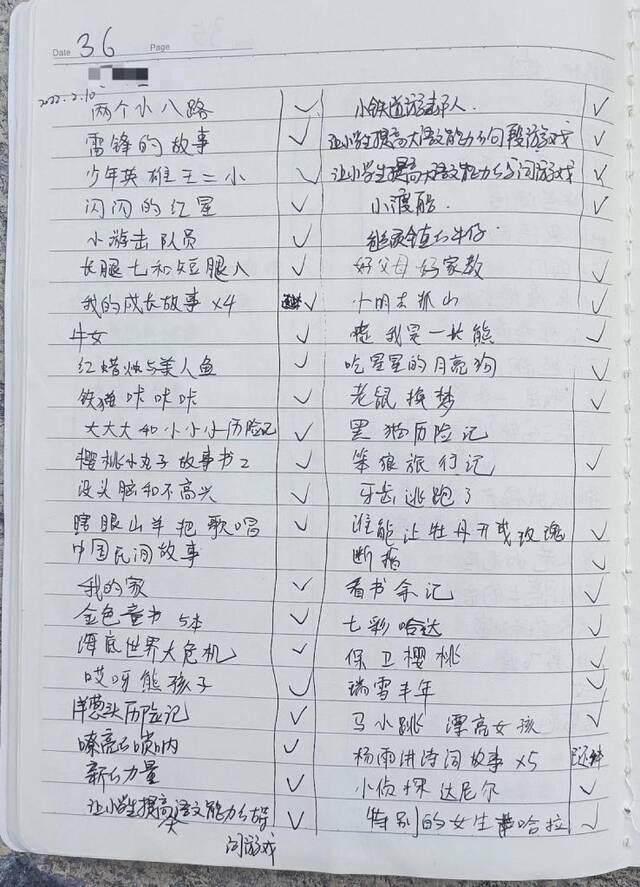 Date 36 Page
2022.2.10
两个小八路 ✓
雷锋的故事 ✓
少年英雄王二小 ✓
闪闪的红星 ✓
小游击队员 ✓
长腿七和短腿八 ✓
我的成长故事 ×4 ✓
牛女 ✓
红蜡烛与美人鱼 ✓
铁猫咔咔咔 ✓
大大大和小小小历险记 ✓
樱桃小丸子故事书2 ✓
没头脑和不高兴 ✓
瞎眼山羊把歌唱 ✓
中国民间故事
我的家 ✓
金色童书 5本 ✓
海底世界大危机 ✓
哎呀熊孩子 ✓
洋葱头历险记 ✓
嘹亮的唢呐 ✓
新的力量 ✓
让小学生提高语文能力的
词游戏
小铁道游击队 ✓
让小学生提高大语文能力的句段游戏 ✓
让小学生提高大语文能力的字词游戏 ✓
小渡船 ✓
牛仔
好父母好家教 ✓
小明去孤山 ✓
我是一头熊 ✓
吃星星的月亮狗 ✓
老鼠换梦 ✓
黑猫历险记
笨狼旅行记 ✓
牙齿逃跑了
谁能让牡丹开成玫瑰 ✓
断指 ✓
看书余记 ✓
七彩哈达 ✓
保卫樱桃 ✓
瑞雪丰年 ✓
马小跳 漂亮女孩 ✓
杨雨讲诗词故事 ×5
小侦探达尼尔 ✓
特别的女生 哈拉 ✓